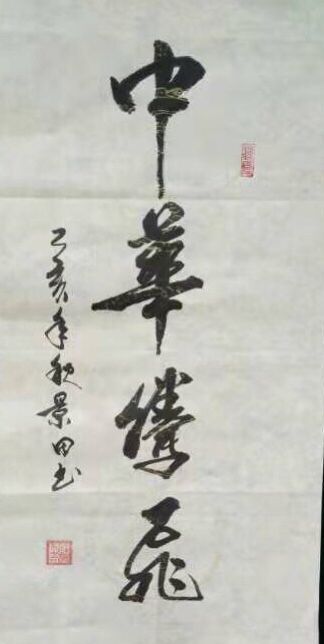 中華騰飛
乙亥年秋景田书